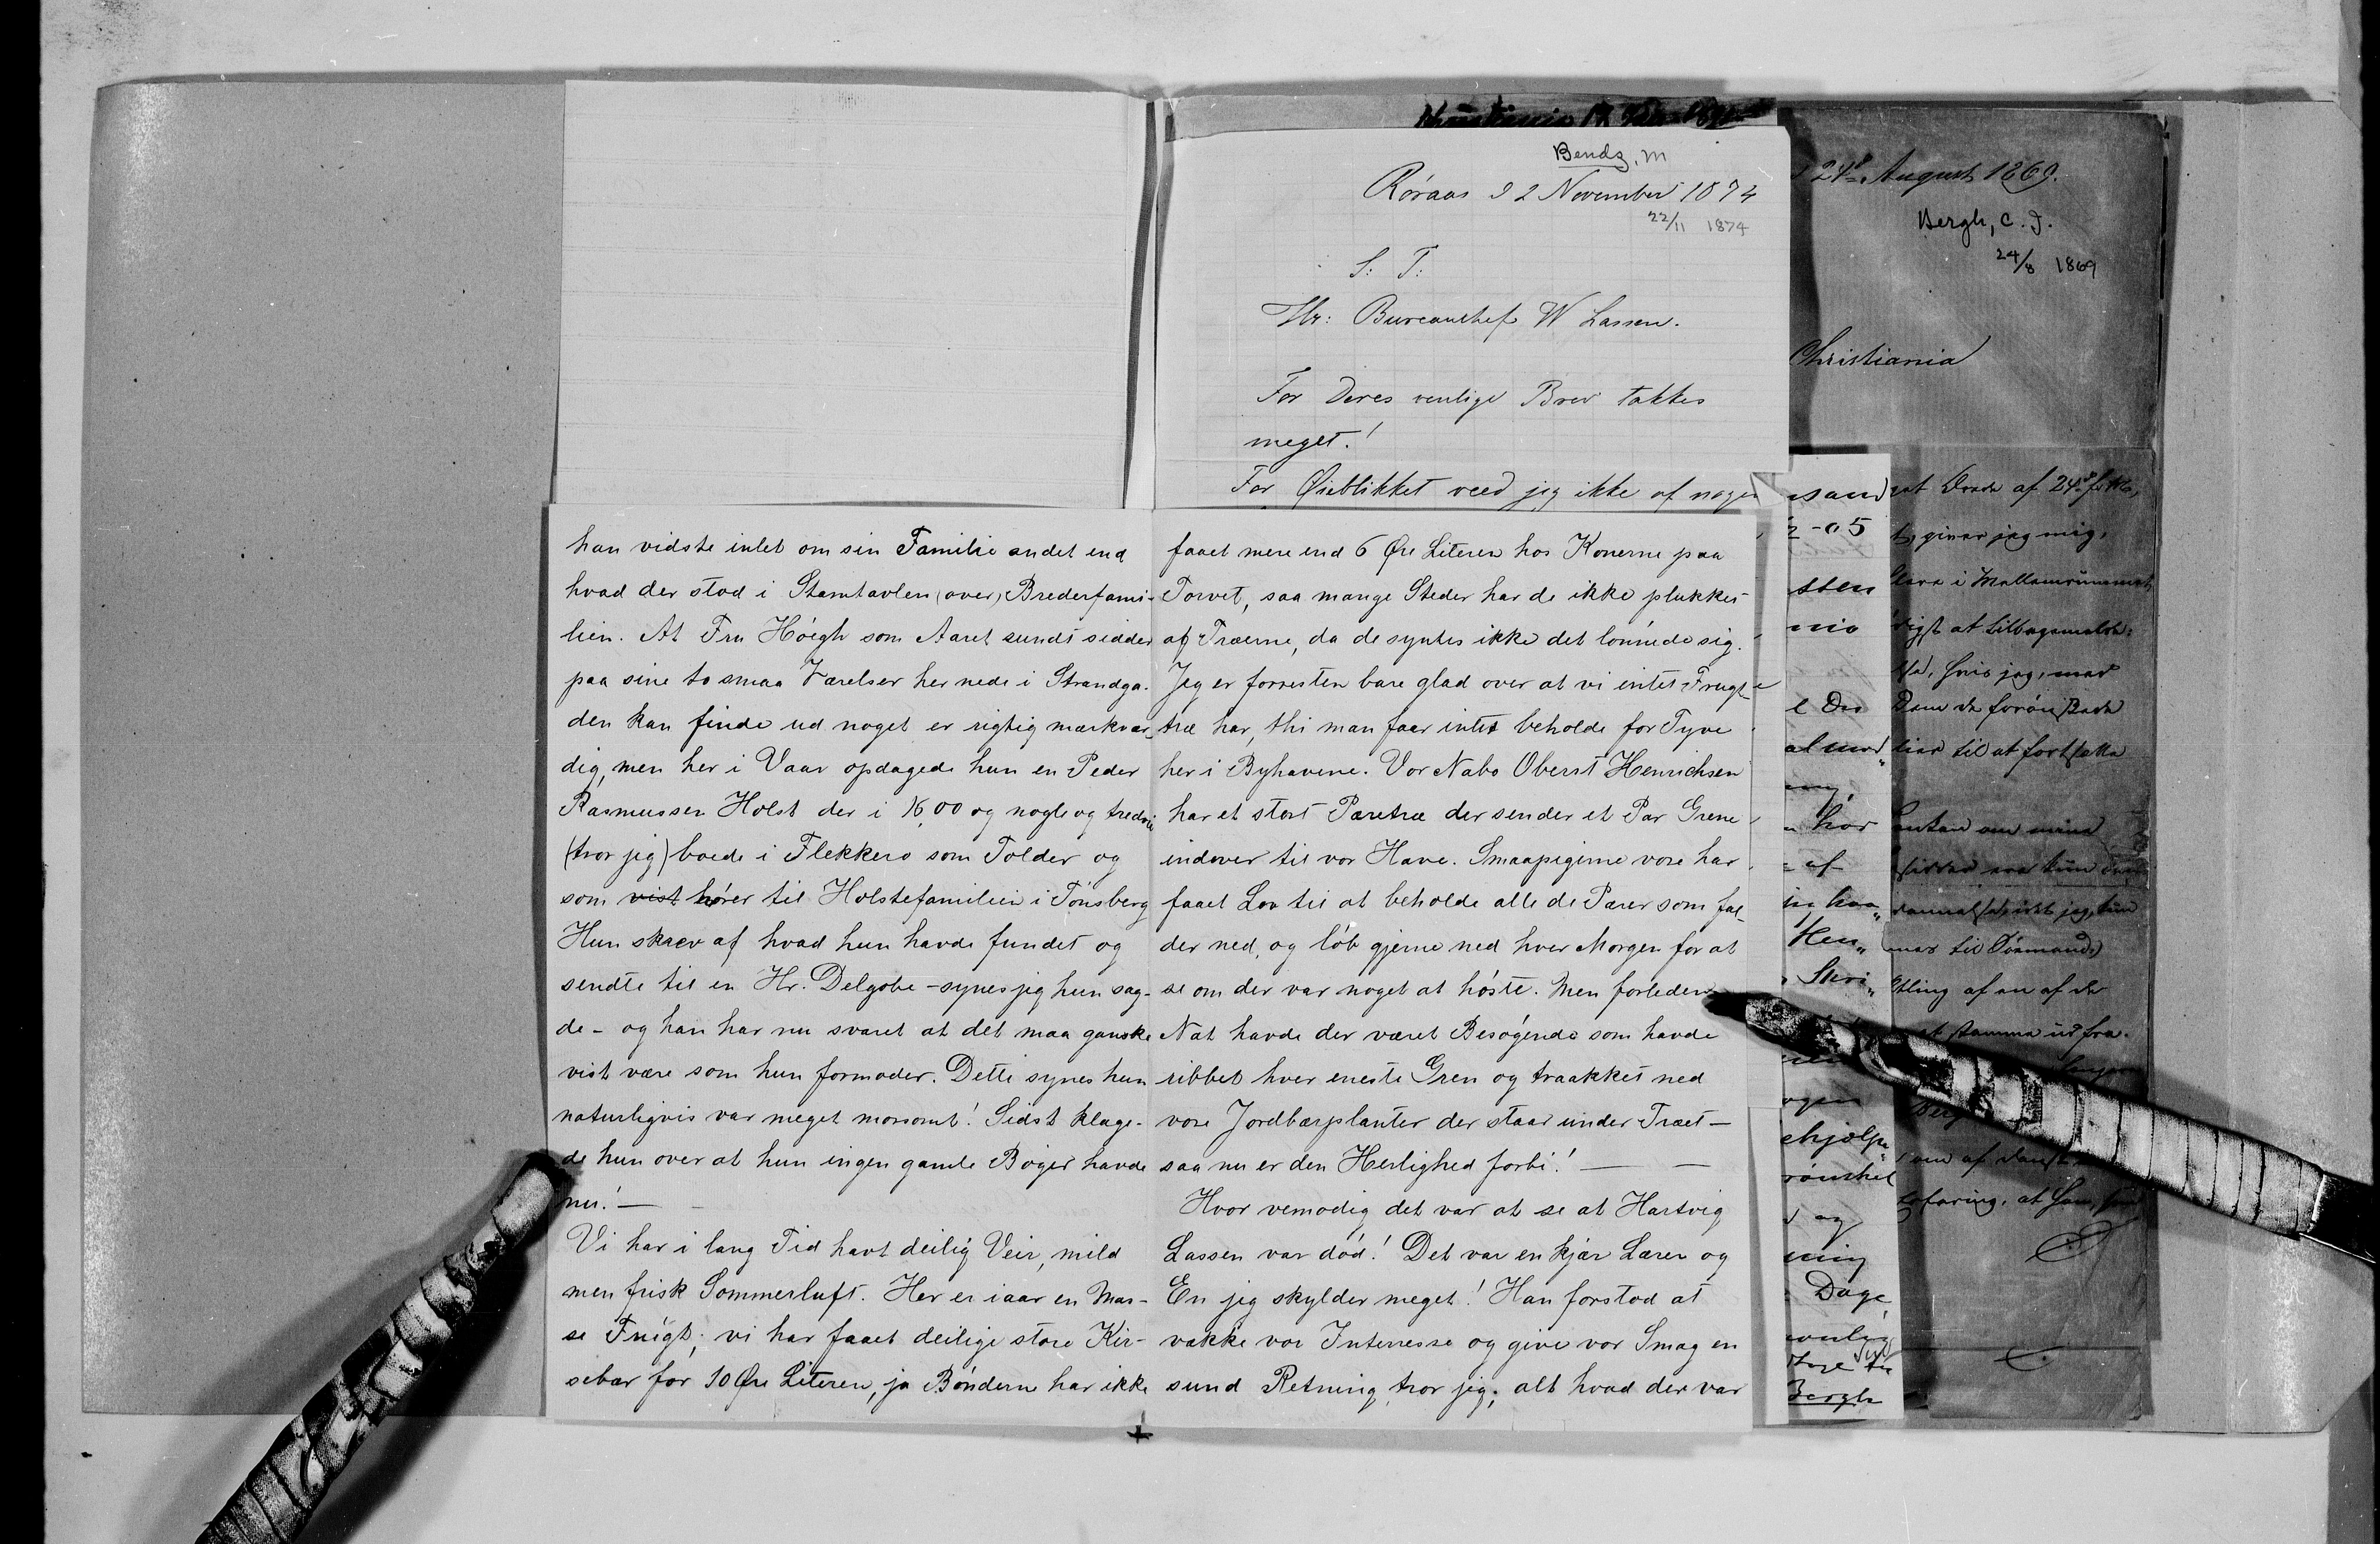 Bendz, M
Röraas 22 November 1874
22/11 1874
S: T:
Hr: Bureauchef W Lassen.
For Deres venlige Brev takkes
meget!
For Øieblikket veed jeg ikke af nogen
24de August 1869.
Bergh, C. J.
24/8 1869
Christiania
han vidste intet om sin Familie andet end
hvad der stod i Stamtavlen (over) Brederfami-
lien. At Fru Höegh som Aaret rundt sidder
paa sine to smaa Værelser her nede i Strandga-
den kan finde ud noget er rigtig mærkvær-
dig, men her i Vaar opdagede hun en Peder
Rasmussen Holst der i 1600 og nogle og tredve
(tror jeg) boede i Flekkerö som Tolder og
som vist hører til Holstefamilien i Tönsberg
Hun skrev af hvad hun havde fundet og
sendte til en Hr. Delgobe - synes jeg hun sag-
de - og han har nu svaret at det maa ganske
vist være som hun formoder. Dette synes hun
naturligvis var meget morsomt! Sidst klage-
de hun over at hun ingen gamle Bøger havde
nu! —
Vi har i lang Tid havt deilig Veir, mild
men frisk Sommerluft. Her er iaar en Mas-
se Frugt; vi har faaet deilige store Kir-
sebær for 10 Øre Literen, ja Bönderne har ikke
faaet mere end 6 Øre Literen hos Konerne paa
Torvet, saa mange Steder har de ikke plukket
af Træerne, da de syntes ikke det lönnede sig.
Jeg er forresten bare glad over at vi intet Frugt-
træ har, thi man faar intet beholde for Tyve
her i Byhavene. Vor Nabo Oberst Henrichsen
har et stort Pæretræ der sender et Par Grene
indover til vor Have. Smaapigerne vore har
faaet Lov til at beholde alle de Pærer som fal-
der ned, og löb gjerne ned hver Morgen for at
se om der var noget at höste. Men forleden
Nat havde der været Besögende som havde
ribbet hver eneste Gren og traakket ned
vore Jordbærplanter der staar under Træet —
saa nu er den Herlighed forbi! — —
Hvor vemodig det var at se at Hartvig
Lassen var död! Det var en kjær Lærer og
En jeg skylder meget! Han forstod at
vække vor Interesse og give vor Smag en
sund Retning, tror jeg; alt hvad der var
sten
al med
har
af
Hen„
Skri„
og
Dage
Bergh